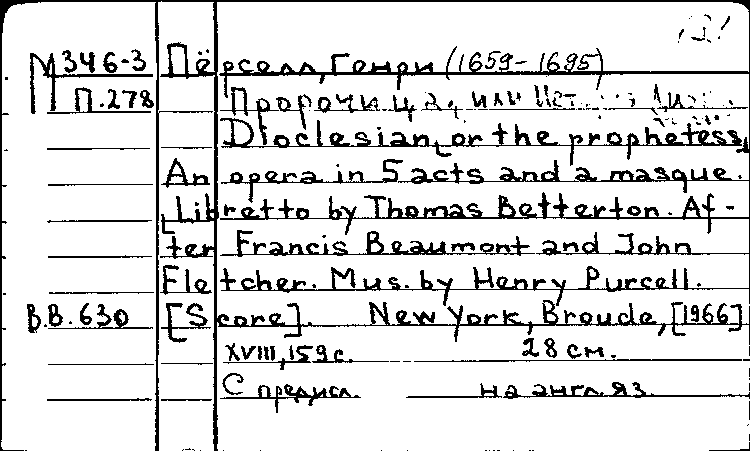 М346-3 Пёрселл, Генри (1659-1695)
П.278 Пророчица, или
Dioclesian, or the prophetess,
An opera in 5 acts and a masque.
Libretto by Thomas Betterton. Af-
ter Francis Beaumont and John
Fletcher. Mus. by Henry Purcell.
В.В.630 [Score]. New York, Broude, [1966]
XVIII, 159 с. 28 см.
С предисл. на англ. яз.